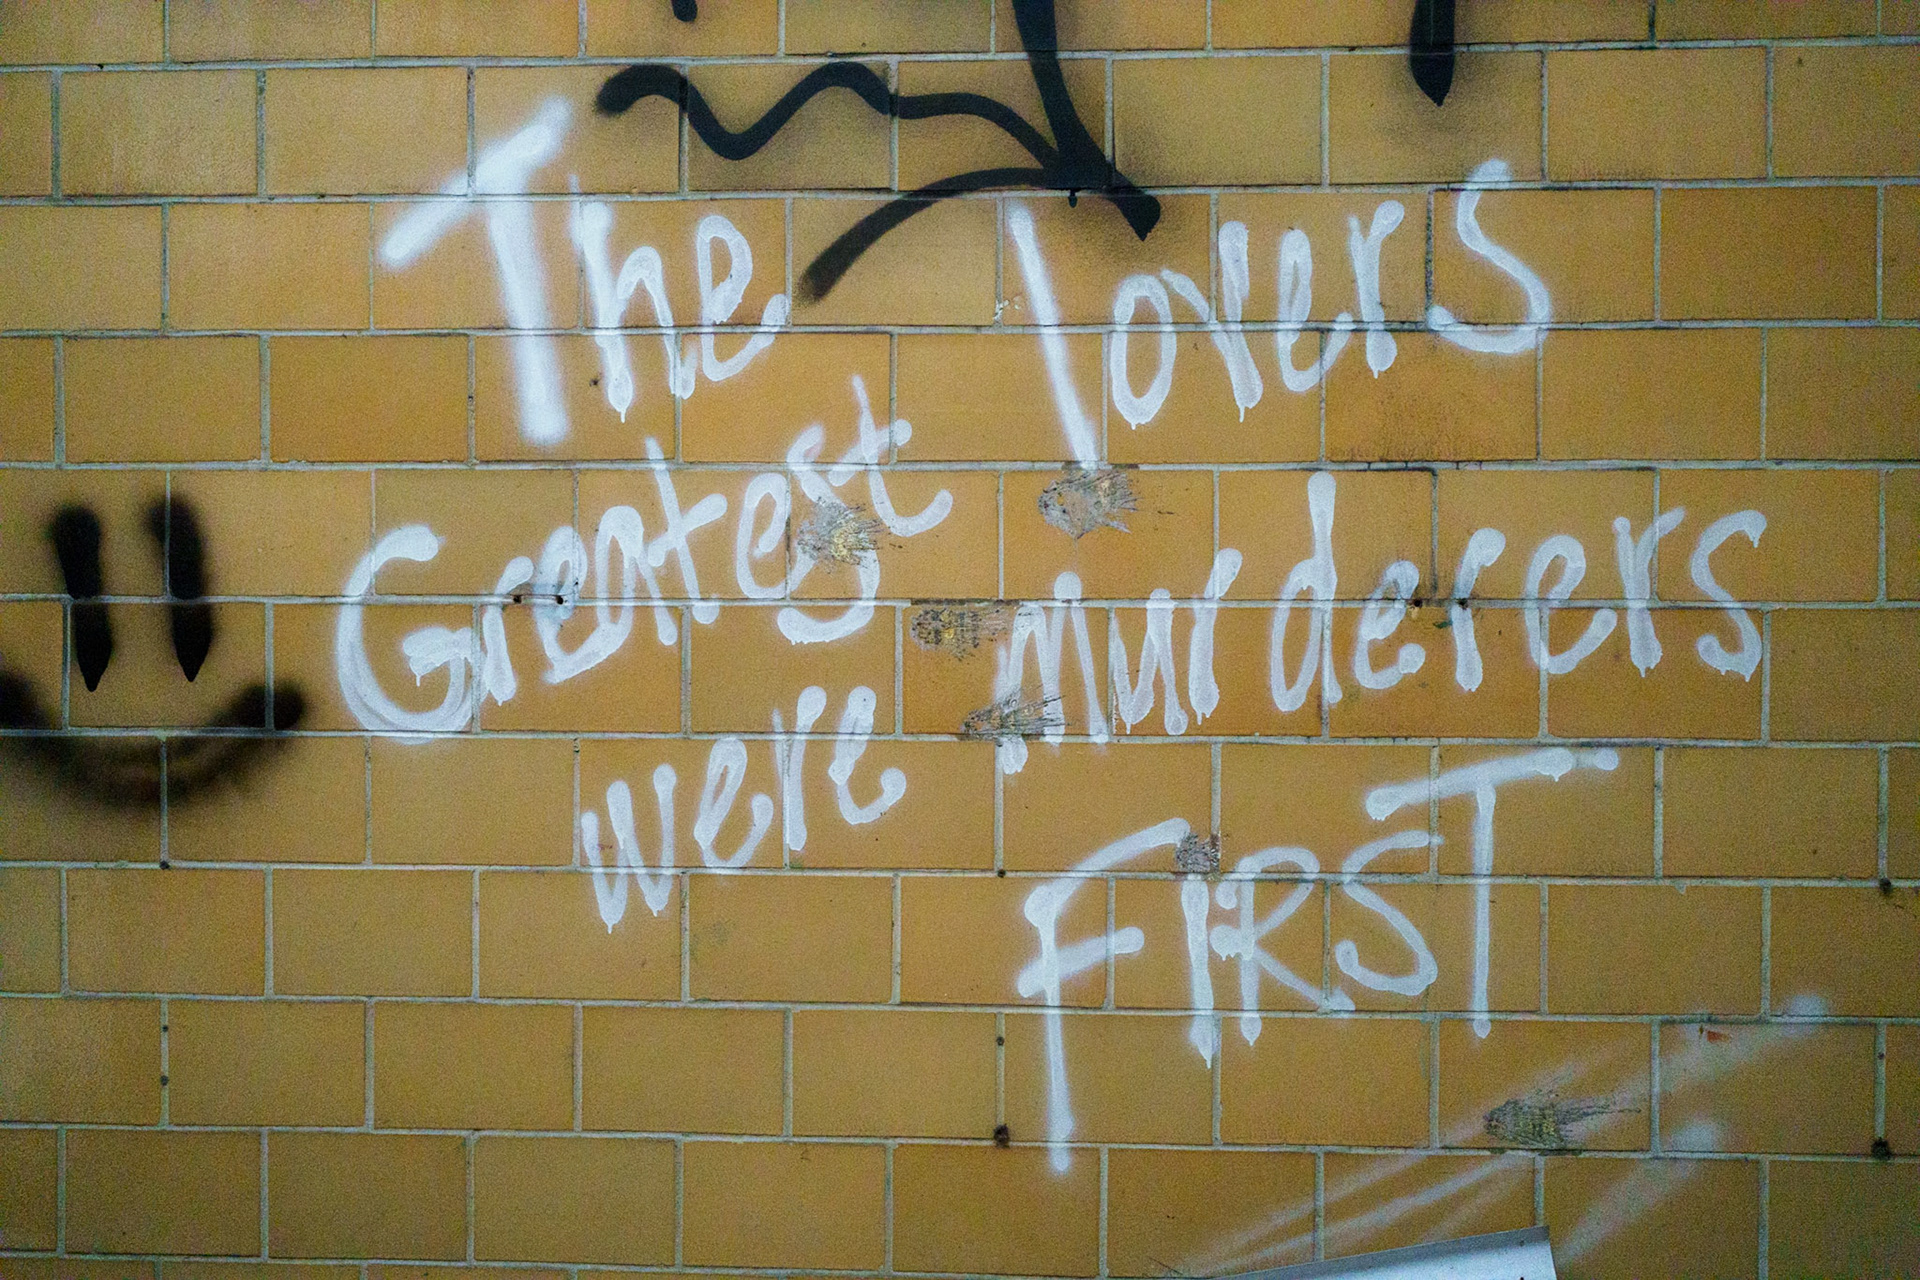 The lovers
Greatest Murderers
were FIRST